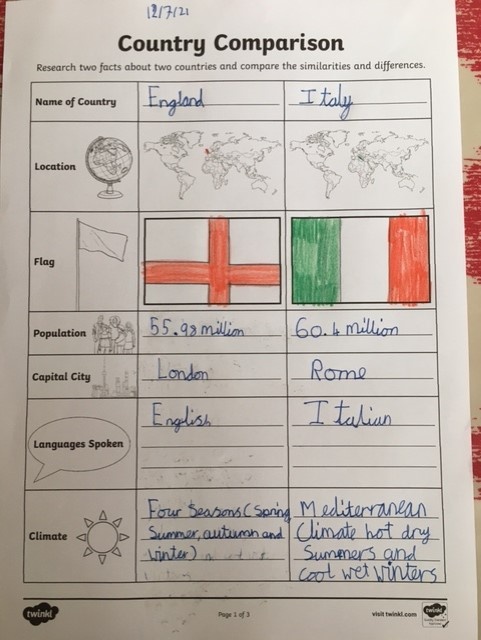 12/7/21
Country Comparison
Research two facts about two countries and compare the similarities and differences.
Name of Country England Italy
Location
Flag
Population 55.98 million 60.4 million
Capital City London Rome
Languages Spoken English Italian
Climate
Four Seasons (Spring
Summer, autumn and
winter)
Mediterranean
Climate hot dry
Summers and
cool wet winters
twinkl
Page 1 of 3
visit twinkl.com
twinkl